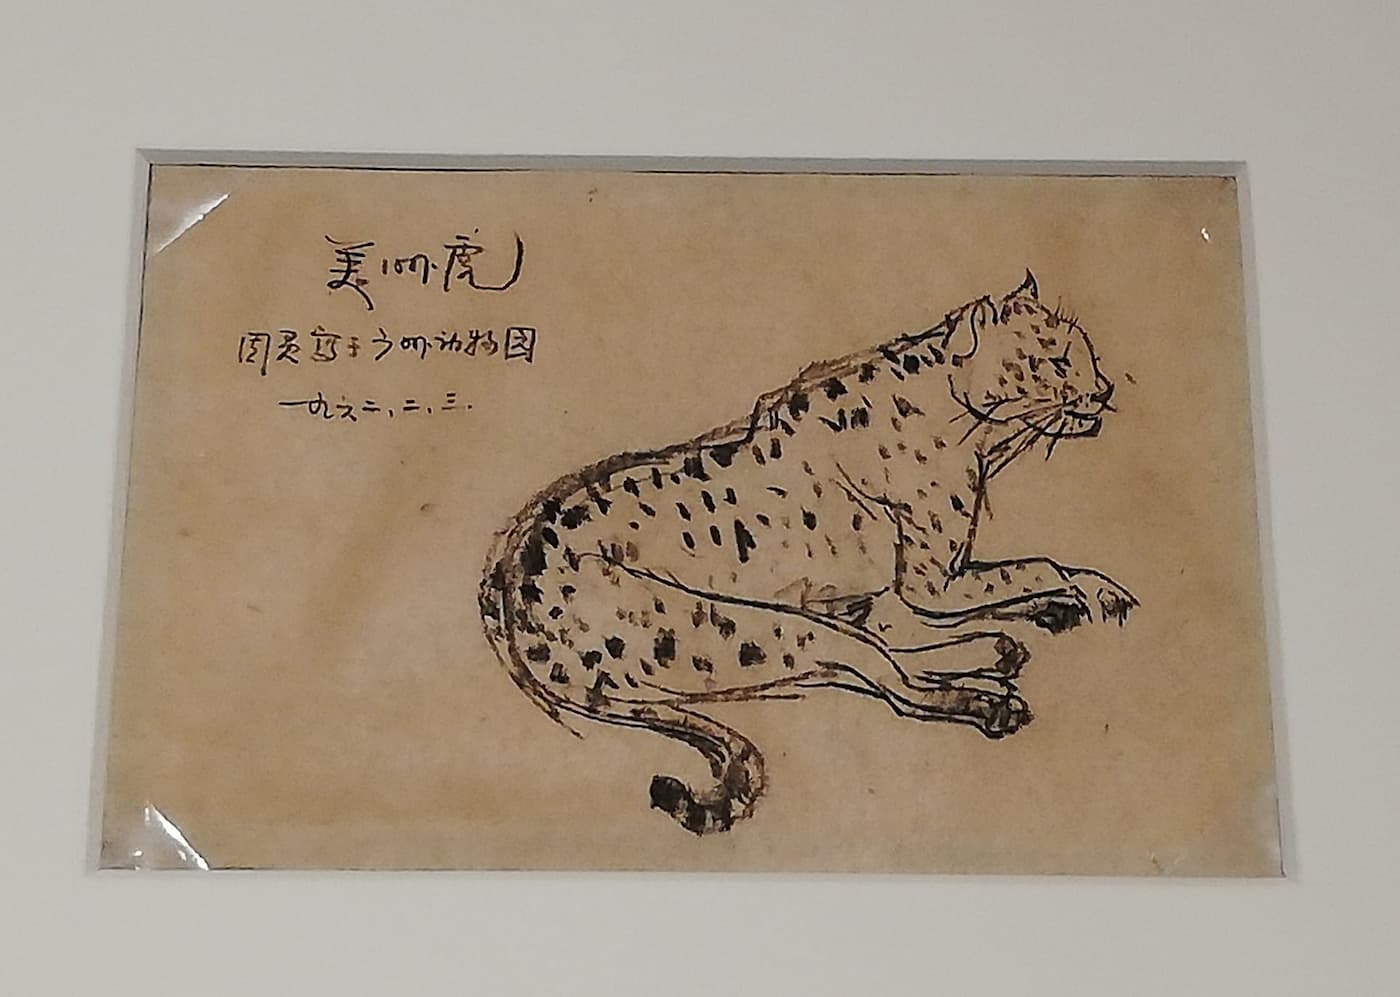 美洲虎
周昃寫于广州动物园
一九六二、二、三.